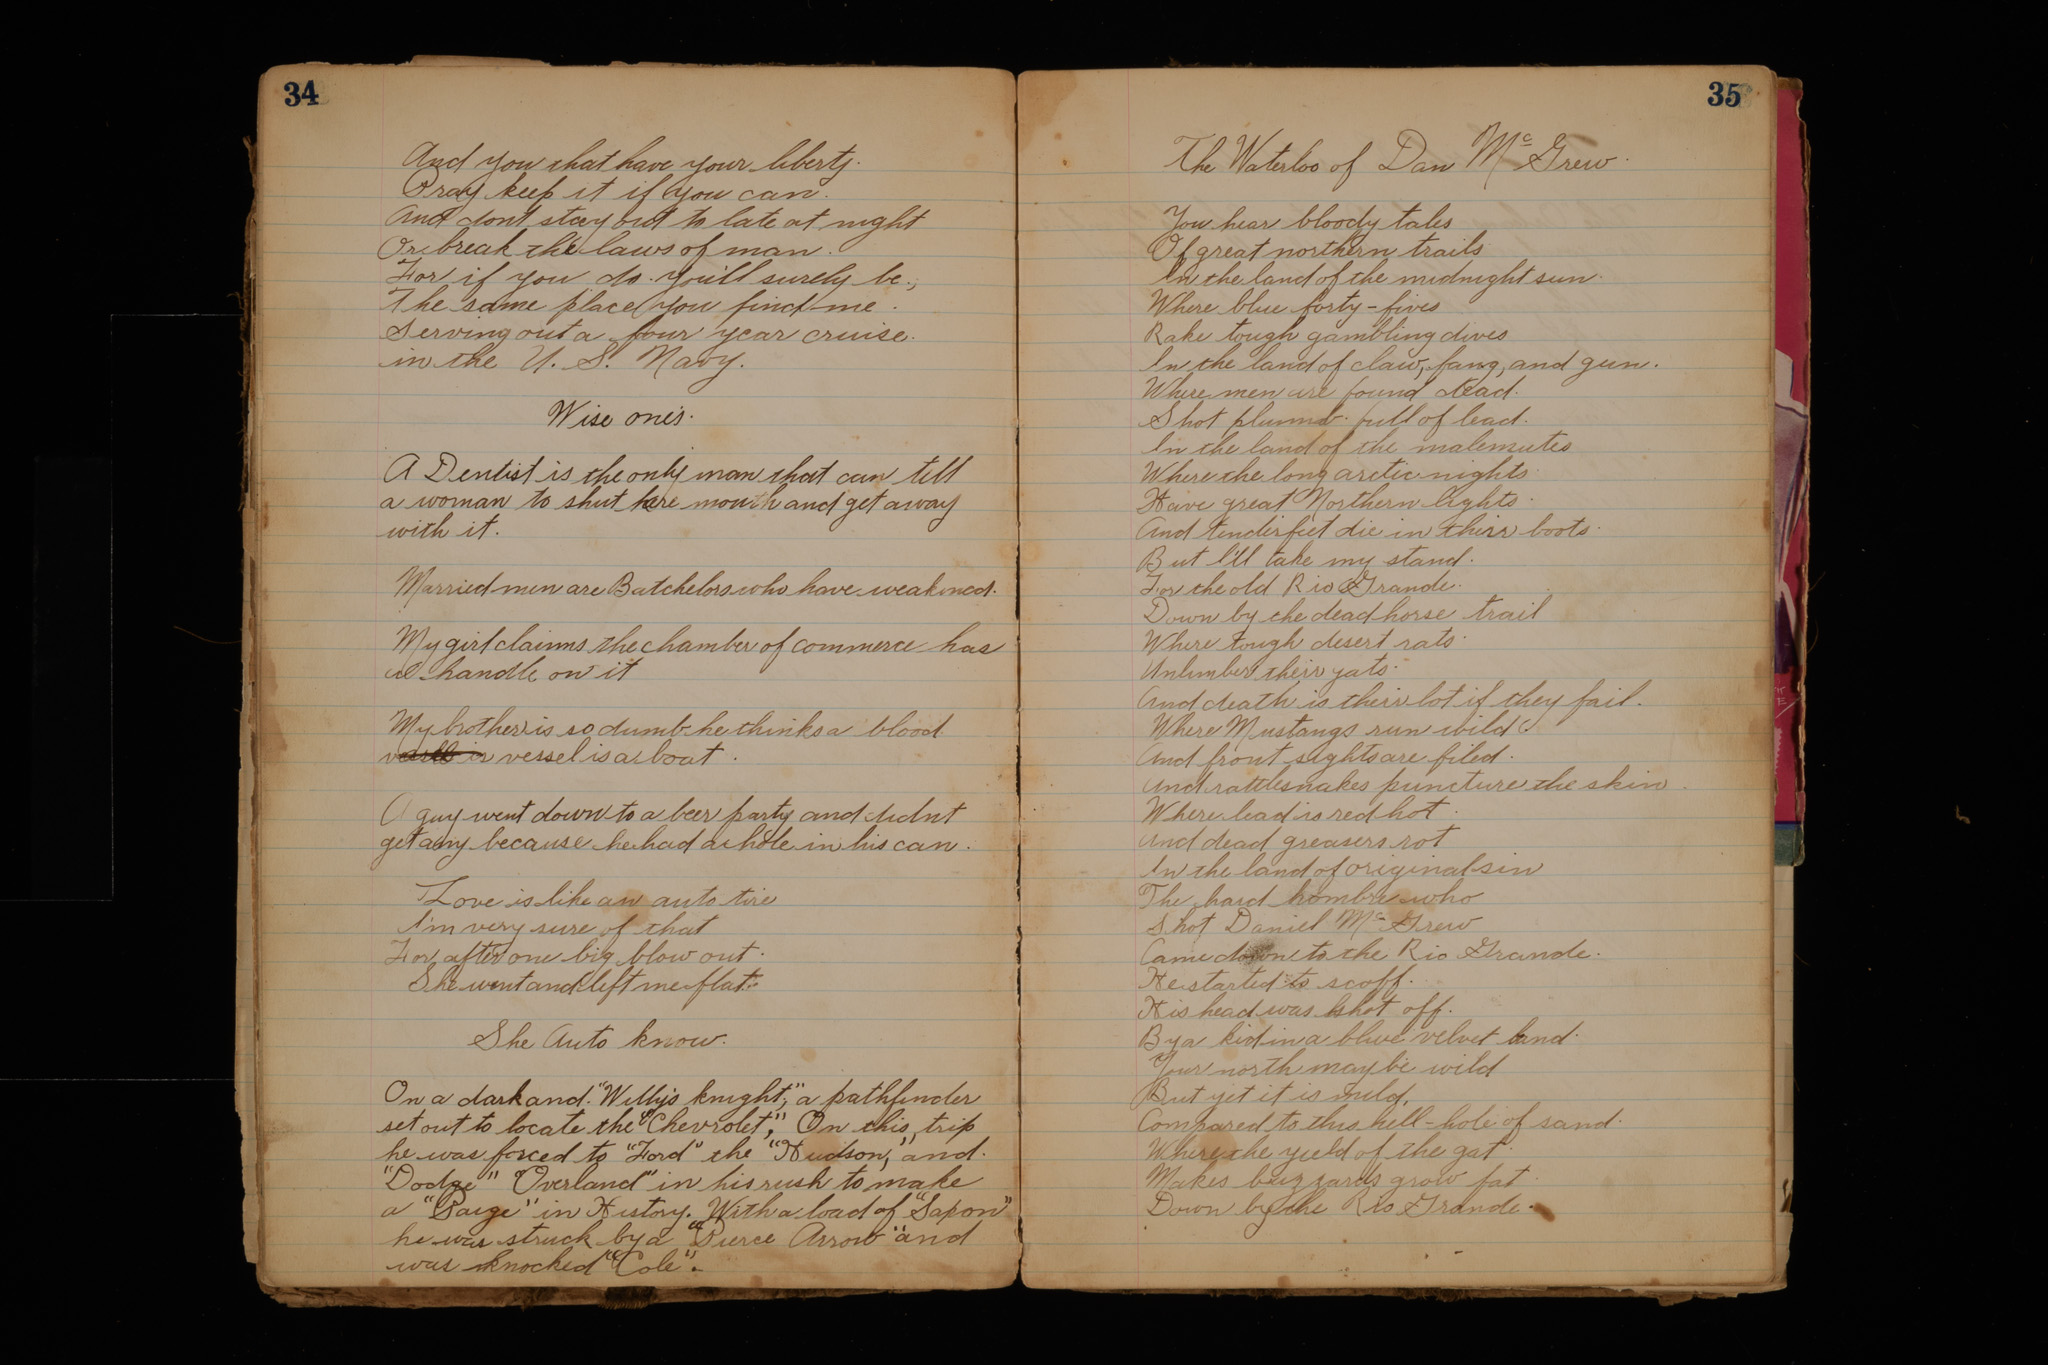 34
And you that have your liberty.
Pray keep it if you can.
And dont stay out to late at night
Or break the laws of man.
For if you do you'll surely be,
The same place you find me.
Serving out a four year cruise.
in the U. S. Navy.
Wise one's.
A Dentist is the only man that can tell
a woman to shut here mouth and get away
with it.
Married men are Batchelors who have weakened.
My girl claims the chamber of commerce has
a handle on it
My brother is so dumb he thinks a blood
vessel is a boat.
A guy went down to a beer party and didnt
get any because he had a hole in his can.
Love is like an auto tire
I'm very sure of that
For after one big blow out.
She went and left me flat.
She Auto know.
On a dark and "Willys knight," a pathfinder
set out to locate the "Chevrolet," On this trip
he was forced to "Ford" the "Hudson," and
"Dodge" "Overland" in his rush to make
a "Paige" in History. With a load of "Sapon"
he was struck by a "Pierce Arrow" and
was knocked "Cole".
35
The Waterloo of Dan McGrew.
You hear bloody tales
Of great northern trails
In the land of the midnight sun.
Where blue forty-fives
Rake tough gambling dives
In the land of claw, fang, and gun.
Where men are found dead.
Shot plumb full of lead.
In the land of the malemutes
Where the long arctic nights
Have great Northern lights.
And tenderfeet die in their boots.
But I'll take my stand.
For the old Rio Grande.
Down by the dead horse trail
Where tough desert rats.
Unlimber their gats.
And death is their lot if they fail.
Where Mustangs run wild
And front sights are filed.
And rattlesnakes puncture the skin.
Where lead is red hot.
And dead greasers rot
In the land of original sin
The hard hombre who
Shot Daniel McGrew
Came down to the Rio Grande.
He started to scoff.
His head was shot off.
By a kid in a blue velvet band.
Your north may be wild
But yet it is mild,
Compared to this hell-hole of sand.
Where the yield of the gat
Makes buzzards grow fat
Down by the Rio Grande.